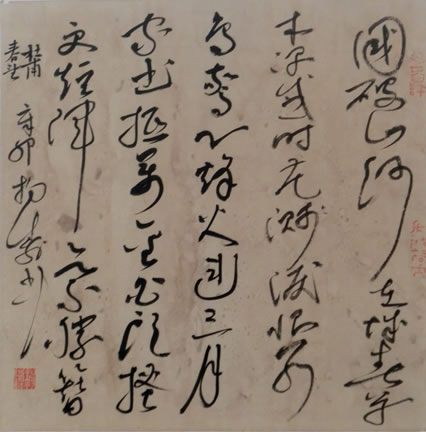 國破山河在城春草
木深感时花溅淚恨别
鸟驚心烽火連三月
家书抵萬金白头搔
更短渾欲不勝簪
杜甫
春望
辛卯 书